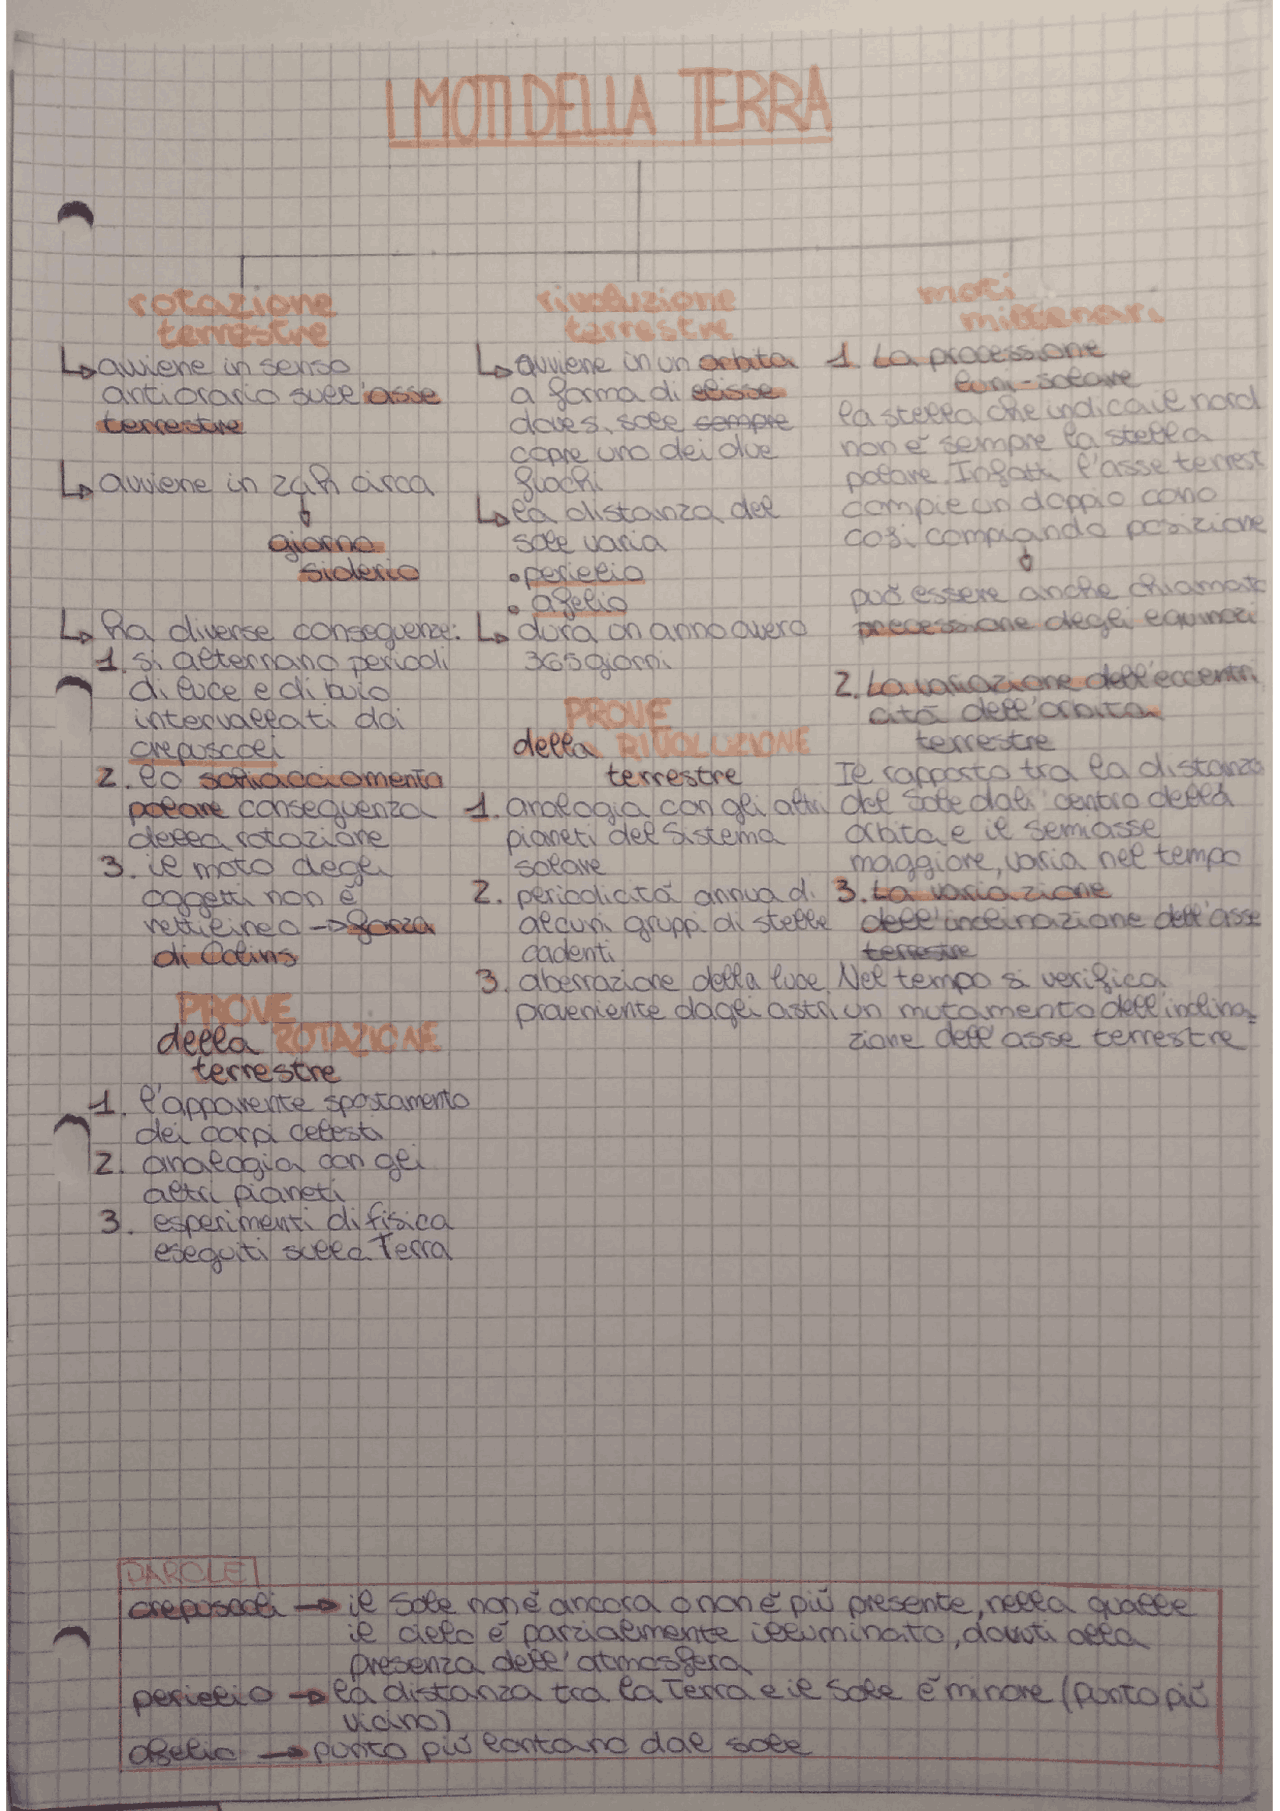 I MOTI DELLA TERRA
rotazione
terrestre
↳ avviene in senso
antiorario sull'asse
terrestre
↳ avviene in 24h circa
↓
giorno
siderio
↳ ha diverse conseguenze:
1. si alternano periodi
di luce e di buio
intervallati dai
crepuscoli
2. lo schiacciamento
polare conseguenza
della rotazione
3. il moto degli
oggetti non è
rettilineo → forza
di Coliris
PROVE
della ROTAZIONE
terrestre
1. l'apparente spostamento
dei corpi celesti
2. analogia con gli
altri pianeti
3. esperimenti di fisica
eseguiti sulla Terra
rivoluzione
terrestre
↳ avviene in un orbita
a forma di elisse
dove s. sole sempre
copre uno dei due
fuochi
↳ la distanza del
sole varia
• perielio
• afelio
↳ dura un anno ovvero
365 giorni
PROVE
della RIVOLUZIONE
terrestre
1. analogia con gli altri
pianeti del Sistema
solare
2. periodicità annua di
alcuni gruppi di stelle
cadenti
3. aberrazione della luce
proveniente dagli astri
moti
millenari
1. La processione
luni-solare
la stella che indica il nord
non è sempre la stella
polare. Infatti l'asse terrest
compie un doppio cono
così compiando posizione
↓
può essere anche chiamato
precessione degli equinozi
2. La variazione dell'eccentri
cità dell'orbita
terrestre
Il rapporto tra la distanza
del Sole dal centro della
orbita e il semiasse
maggiore, varia nel tempo
3. La variazione
dell'inclinazione dell'asse
terrestre
Nel tempo si verifica
un mutamento dell'inclina-
zione dell'asse terrestre
PAROLE
crepuscoli → il Sole non è ancora o non è più presente, nella qualle
il cielo è parzialmente illuminato, dovuti alla
presenza dell'atmosfera
perielio → la distanza tra la Terra e il Sole è minore (punto più
vicino)
afelio → punto più lontano dal sole